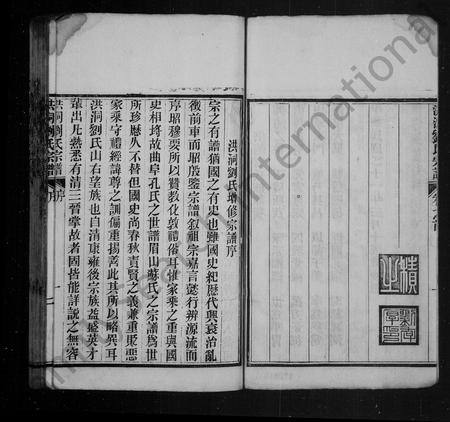 洪洞劉氏宗譜
洪洞劉氏增修宗譜序
宗之有譜猶國之有史也雖國史紀歷代興衰治亂
後前車而昭殷鑒宗譜敘祖宗嘉言懿行辨源流而
序昭穆要所以贊教化敦禮俗耳惟家乘之重與國
史相埒故曲阜孔氏之世譜眉山蘇氏之宗譜爲世
所珍歷久不替但國史尚春秋責賢之義兼重貶惡
家乘守禮經諱尊之訓偏重揚善此其所以略異耳
洪洞劉氏山右望族也自清康雍後宗族益盛英才
輩出凡熟悉有清三晉掌故者固皆能詳說之無容
洪洞劉氏宗譜 序 一
洪洞劉氏宗譜 序
International